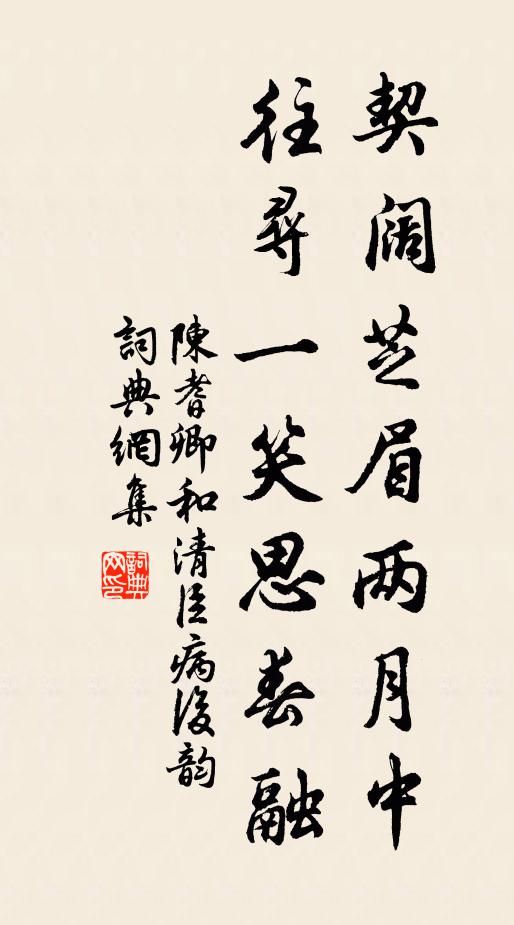 契阔芝眉两月中
往尋一笑思春融
陳耆卿和清臣病後韵
詞典網集
詞典网印